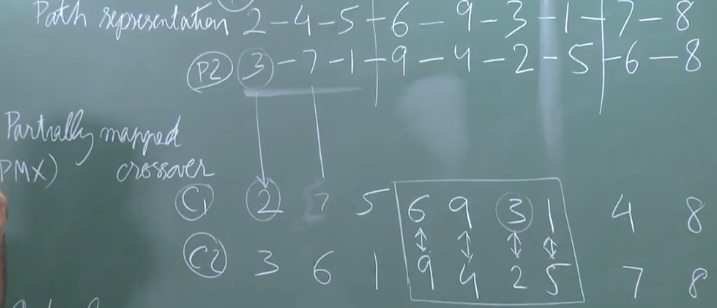 Path representation 2-4-5-6-9-3-1-7-8
P2 3-7-1-9-4-2-5-6-8
Partially mapped
PMX) crossover
C1 2 7 5 6 9 3 1 4 8
C2 3 6 1 9 4 2 5 7 8